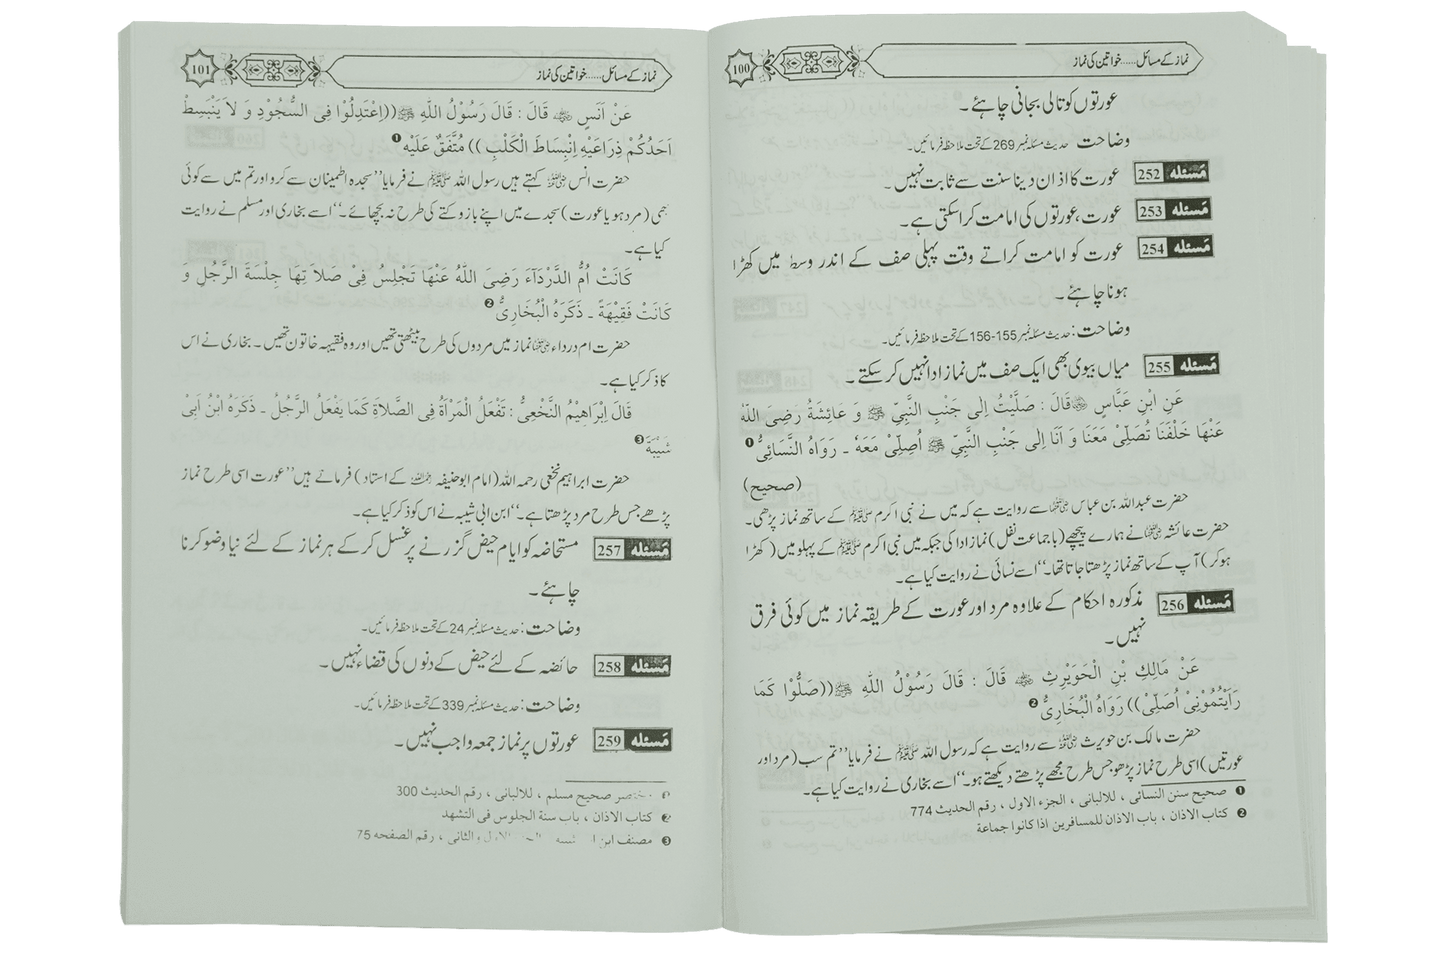 100
نماز کے مسائل ..... خواتین کی نماز
عورتوں کو تالی بجانی چاہئے۔
وضاحت : حدیث مسئلہ نمبر 269 کے تحت ملاحظہ فرمائیں۔
مَسئله 252 عورت کا اذان دینا سنت سے ثابت نہیں۔
مَسئله 253 عورت، عورتوں کی امامت کرا سکتی ہے۔
مَسئله 254 عورت کو امامت کراتے وقت پہلی صف کے اندر وسط میں کھڑا
ہونا چاہئے۔
وضاحت : حدیث مسئلہ نمبر 155-156 کے تحت ملاحظہ فرمائیں۔
مَسئله 255 میاں بیوی بھی ایک صف میں نماز ادا نہیں کر سکتے۔
عَنِ ابْنِ عَبَّاسٍ ؓ قَالَ : صَلَّيْتُ اِلٰی جَنْبِ النَّبِيِّ ﷺ وَ عَائِشَةُ رَضِیَ اللّٰهُ
عَنْهَا خَلْفَنَا تُصَلِّیْ مَعَنَا وَ اَنَا اِلٰی جَنْبِ النَّبِيِّ ﷺ اُصَلِّیْ مَعَهٗ ۔ رَوَاهُ النَّسَائِیُّ ❶
(صحیح)
حضرت عبداللہ بن عباس ؓ سے روایت ہے کہ میں نے نبی اکرم ﷺ کے ساتھ نماز پڑھی۔
حضرت عائشہ ؓ نے ہمارے پیچھے (باجماعت نفل) نماز ادا کی جبکہ میں نبی اکرم ﷺ کے پہلو میں (کھڑا
ہو کر) آپ کے ساتھ نماز پڑھتا جاتا تھا۔‘‘ اسے نسائی نے روایت کیا ہے۔
مَسئله 256 مذکورہ احکام کے علاوہ مرد اور عورت کے طریقہ نماز میں کوئی فرق
نہیں۔
عَنْ مَالِكِ بْنِ الْحَوَيْرِثِ ؓ قَالَ : قَالَ رَسُوْلُ اللّٰهِ ﷺ ((صَلُّوْا كَمَا
رَاَيْتُمُوْنِیْ اُصَلِّیْ)) رَوَاهُ الْبُخَارِیُّ ❷
حضرت مالک بن حویرث ؓ سے روایت ہے کہ رسول اللہ ﷺ نے فرمایا ’’تم سب (مرد اور
عورتیں) اسی طرح نماز پڑھو جس طرح مجھے پڑھتے دیکھتے ہو۔‘‘ اسے بخاری نے روایت کیا ہے۔
❶ صحیح سنن النسائی ، للالبانی ، الجزء الاول ، رقم الحدیث 774
❷ کتاب الاذان ، باب الاذان للمسافرین اذا کانوا جماعة
101
نماز کے مسائل ..... خواتین کی نماز
عَنْ اَنَسٍ ؓ قَالَ : قَالَ رَسُوْلُ اللّٰهِ ﷺ ((اِعْتَدِلُوْا فِی السُّجُوْدِ وَ لاَ يَنْبَسِطْ
اَحَدُكُمْ ذِرَاعَيْهِ اِنْبِسَاطَ الْكَلْبِ )) مُتَّفَقٌ عَلَيْهِ ❶
حضرت انس ؓ کہتے ہیں رسول اللہ ﷺ نے فرمایا ’’سجدہ اطمینان سے کرو اور تم میں سے کوئی
بھی (مرد ہو یا عورت) سجدے میں اپنے بازو کتے کی طرح نہ بچھائے۔‘‘ اسے بخاری اور مسلم نے روایت
کیا ہے۔
كَانَتْ اُمُّ الدَّرْدَآءِ رَضِیَ اللّٰهُ عَنْهَا تَجْلِسُ فِیْ صَلاَ تِهَا جِلْسَةَ الرَّجُلِ وَ
كَانَتْ فَقِيْهَةً ۔ ذَكَرَهُ الْبُخَارِیُّ ❷
حضرت ام درداء ؓ نماز میں مردوں کی طرح بیٹھتی تھیں اور وہ فقیہہ خاتون تھیں۔ بخاری نے اس
کا ذکر کیا ہے۔
قَالَ اِبْرَاهِيْمُ النَّخْعِیُّ : تَفْعَلُ الْمَرْاَةُ فِی الصَّلاَةِ كَمَا يَفْعَلُ الرَّجُلُ ۔ ذَكَرَهُ ابْنُ اَبِیْ
شَيْبَةَ ❸
حضرت ابراہیم نخعی رحمہ اللہ (امام ابو حنیفہ ؒ کے استاد) فرماتے ہیں ’’عورت اسی طرح نماز
پڑھے جس طرح مرد پڑھتا ہے۔‘‘ ابن ابی شیبہ نے اس کو ذکر کیا ہے۔
مَسئله 257 مستحاضہ کو ایام حیض گزرنے پر غسل کر کے ہر نماز کے لئے نیا وضو کرنا
چاہئے۔
وضاحت : حدیث مسئلہ نمبر 24 کے تحت ملاحظہ فرمائیں۔
مَسئله 258 حائضہ کے لئے حیض کے دنوں کی قضاء نہیں۔
وضاحت : حدیث مسئلہ نمبر 339 کے تحت ملاحظہ فرمائیں۔
مَسئله 259 عورتوں پر نماز جمعہ واجب نہیں۔
❶ صحیح مسلم ، للالبانی ، رقم الحدیث 300
❷ کتاب الاذان ، باب سنة الجلوس فی التشهد
❸ مصنف ابن والثانی ، رقم الصفحه 75